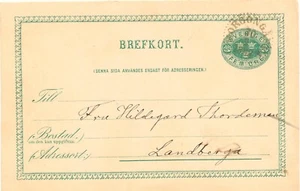 BREFKORT.
(DENNA SIDA ANVÄNDES ENDAST FÖR ADRESSERINGEN.)
FEM ÖRE
Till
Fru Hildegard Thordeman
Bostad:
(då den kan uppgifvas)
Landberga
Adressort: